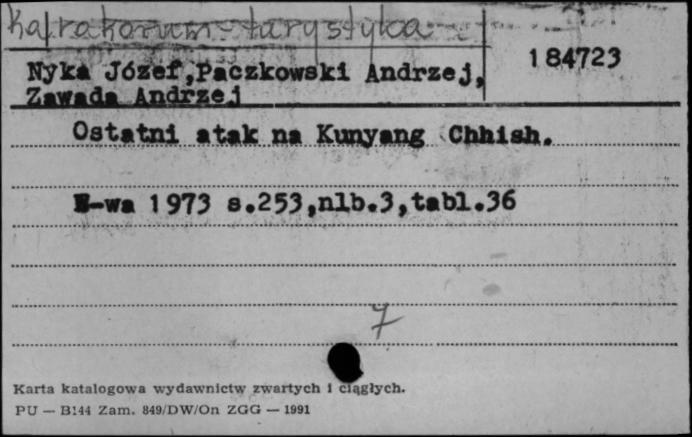 Karakorum - tarystyka
184723
Nyka Józef,Paczkowski Andrzej,
Zawada Andrzej
Ostatni atak na Kunyang Chhish.
W-wa 1973 s.253,nlb.3,tabl.36
7
Karta katalogowa wydawnictw zwartych i ciągłych.
PU — B144 Zam. 849/DW/On ZGG — 1991